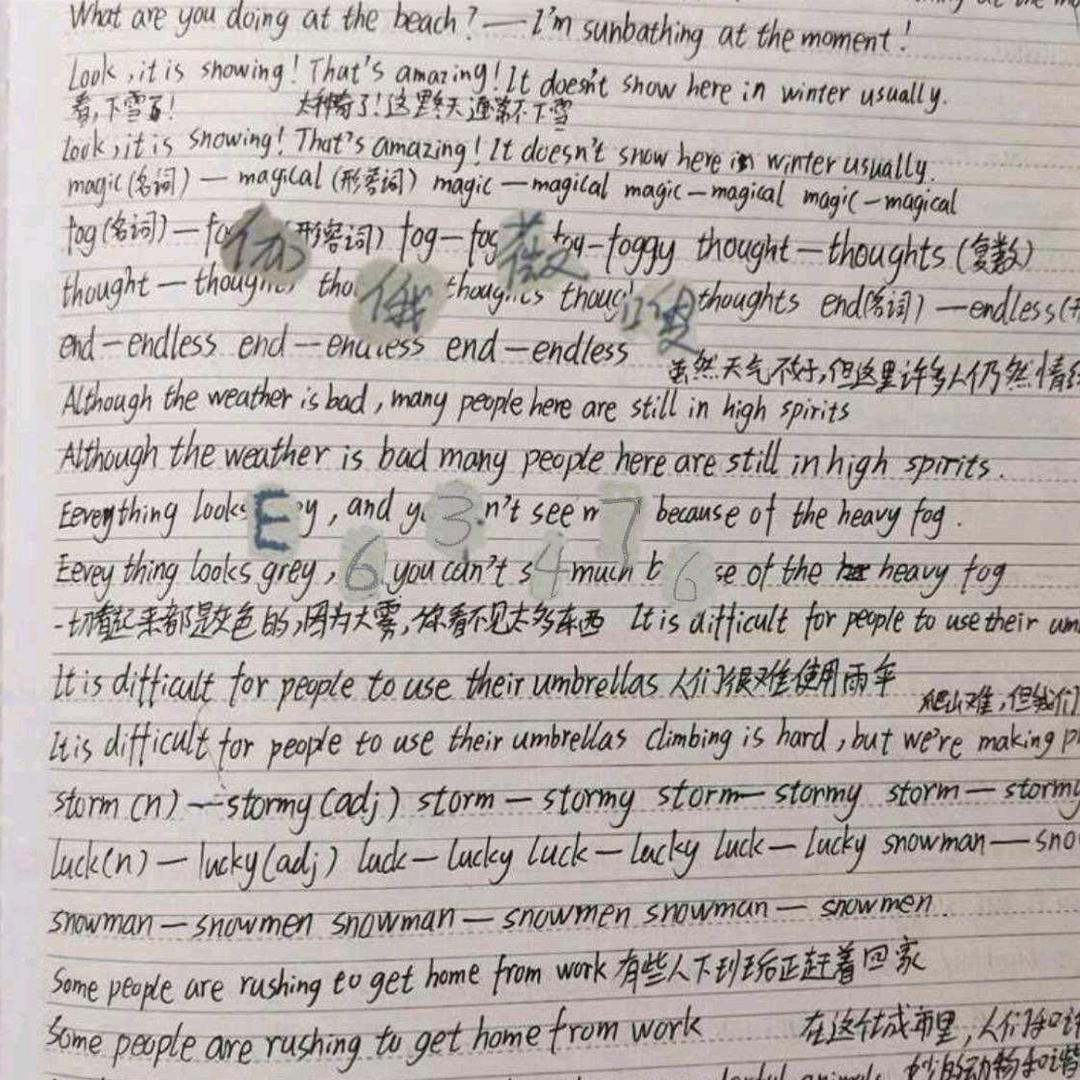 What are you doing at the beach? — I'm sunbathing at the moment!
Look, it is snowing! That's amazing! It doesn't snow here in winter usually.
看,下雪了! 太神奇了!这里冬天通常不下雪
Look, it is snowing! That's amazing! It doesn't snow here in winter usually.
magic(名词) — magical (形容词) magic — magical magic — magical magic — magical
fog(名词) — 形容词) fog — fog foggy thought — thoughts (复数)
thought — thoughts thoughts end(名词) — endless
end — endless end — endless end — endless
虽然天气不好,但这里许多人仍然情绪
Although the weather is bad, many people here are still in high spirits
Although the weather is bad many people here are still in high spirits.
Eeverything looks E y, and 3 n't see 7 because of the heavy fog.
Eevey thing looks grey, 6 you can't 4 much 6 se of the heavy fog
一切看起来都是灰色的,因为大雾,你看不见太多东西 It is difficult for people to use their um
It is difficult for people to use their umbrellas 人们很难使用雨伞
爬山难,但我们
It is difficult for people to use their umbrellas climbing is hard, but we're making
storm (n) — stormy (adj) storm — stormy storm — stormy storm — stormy
luck(n) — lucky(adj) luck — lucky luck — lucky luck — lucky snowman — sno
snowman — snowmen snowman — snowmen snowman — snowmen.
Some people are rushing to get home from work 有些人下班后正赶着回家
Some people are rushing to get home from work 在这个城市里,人们和
动物和谐